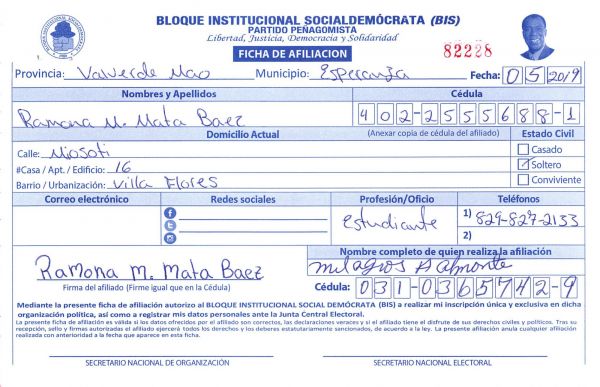 BLOQUE INSTITUCIONAL SOCIALDEMÓCRATA (BIS)
PARTIDO PEÑAGOMISTA
Libertad, Justicia, Democracia y Solidaridad
FICHA DE AFILIACION
82228
Provincia: Valverde Mao Municipio: Esperanza Fecha: 05 2019
Nombres y Apellidos Cédula
Ramona M. Mata Baez 402-2555688-1
Domicilio Actual (Anexar copia de cédula del afiliado) Estado Civil
Calle: Miosoti Casado
#Casa / Apt. / Edificio: 16 Soltero
Barrio / Urbanización: Villa Flores Conviviente
Correo electrónico Redes sociales Profesión/Oficio Teléfonos
Estudiante 1) 829-827-2133
2)
Nombre completo de quien realiza la afiliación
Ramona M. Mata Baez milagros A almonte
Firma del afiliado (Firme igual que en la Cédula) Cédula: 031-0365742-9
Mediante la presente ficha de afiliación autorizo al BLOQUE INSTITUCIONAL SOCIAL DEMÓCRATA (BIS) a realizar mi inscripción única y exclusiva en dicha
organización política, así como a registrar mis datos personales ante la Junta Central Electoral.
La presente ficha de afiliación es válida si los datos ofrecidos por el afiliado son correctos, las declaraciones veraces y si el afiliado tiene el disfrute de sus derechos civiles y políticos. Tras su
recepción, sello y firmas autorizadas el afiliado ejercerá todos los derechos y los deberes estatutariamente sancionados, de acuerdo con la Constitución y la Ley. La presente afiliación anula cualquier afiliación
realizada con anterioridad a la fecha que aparece en esta ficha.
SECRETARIO NACIONAL DE ORGANIZACIÓN SECRETARIO NACIONAL ELECTORAL